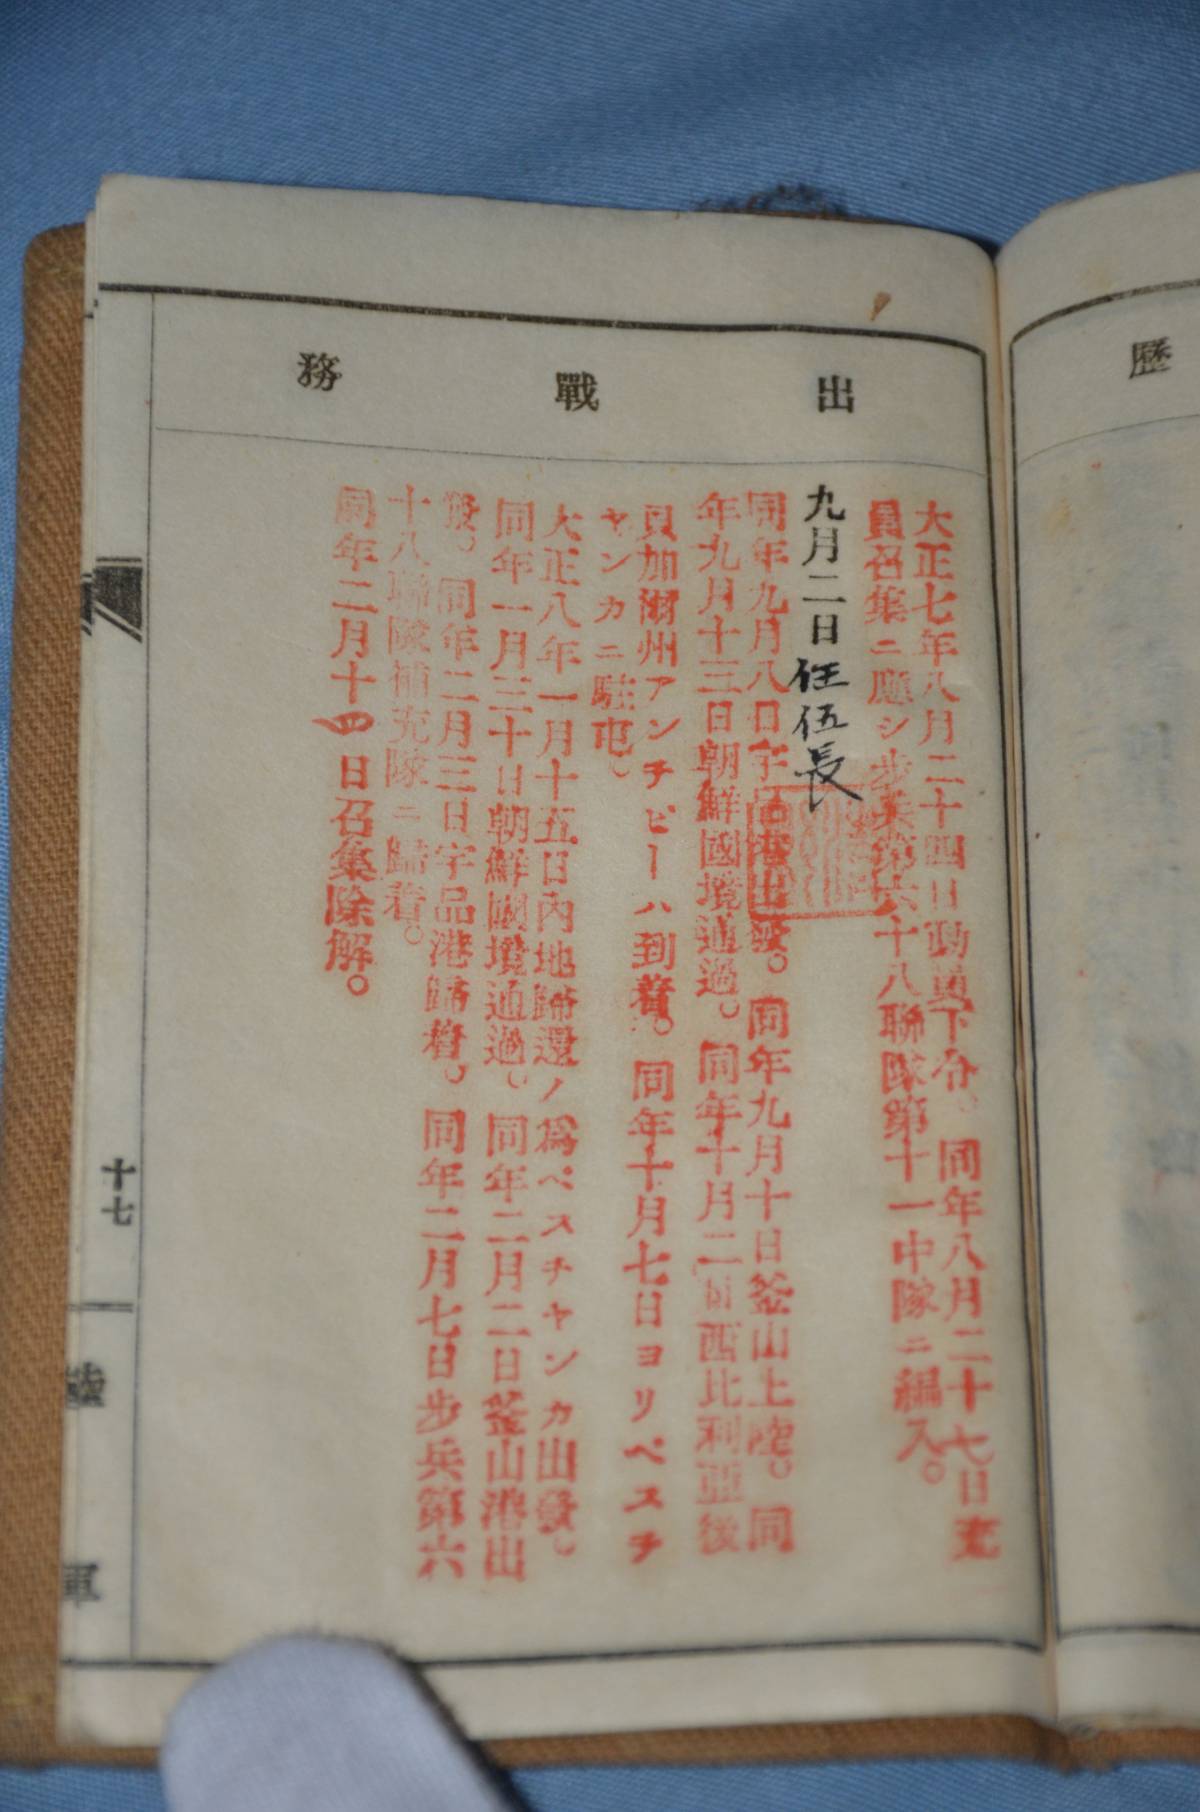 歷
出戰務
大正七年八月二十四日動員下令。同年八月二十七日充
員召集ニ應シ步兵第六十八聯隊第十一中隊ニ編入。
九月二日任伍長
同年九月八日宇品港出發。同年九月十日釜山上陸。同
年九月十三日朝鮮國境通過。同年十月二日西比利亞後
貝加爾州アンチピーハ到着。同年十月七日ヨリペスチ
ヤンカニ駐屯。
大正八年一月十五日內地歸還ノ爲ペスチヤンカ出發。
同年一月三十日朝鮮國境通過。同年二月二日釜山港出
發。同年二月三日宇品港歸着。同年二月七日步兵第六
十八聯隊補充隊ニ歸着。
同年二月十四日召集除解。
十七
陸軍